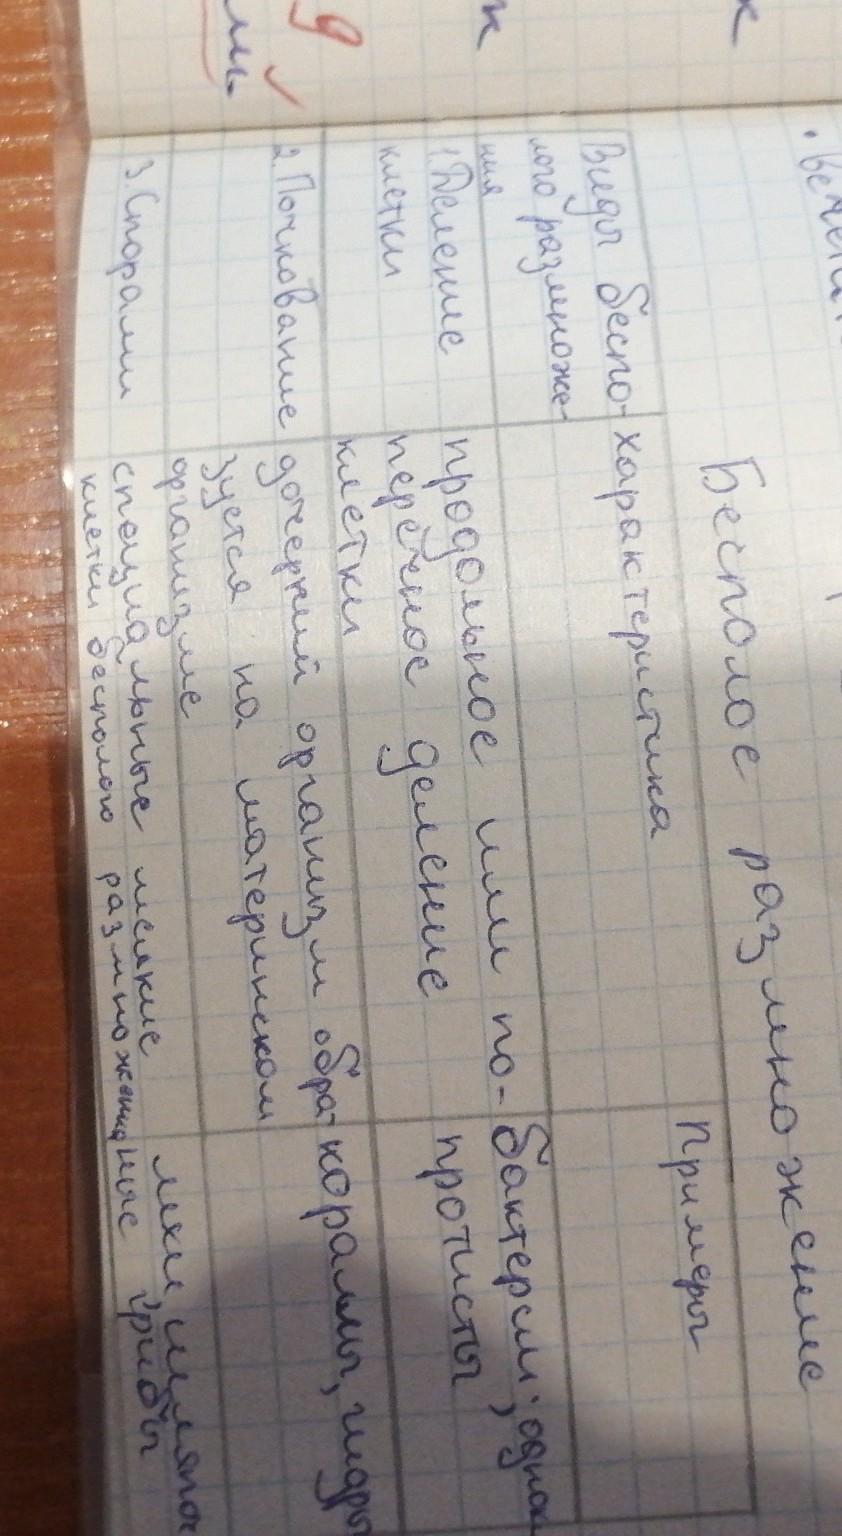 Бесполое размножение
Виды беспо-
лого размноже-
ния
характеристика
Примеры
1. Деление
клетки
продольное или по-
перечное деление
клетки
бактерии, однок
протисты
2. Почкование
дочерний организм обра-
зуется на материнском
организме
кораллы, гидры
3. Спорами
специальные мелкие
клетки бесполого размножения
мхи, шляпоч
ные грибы